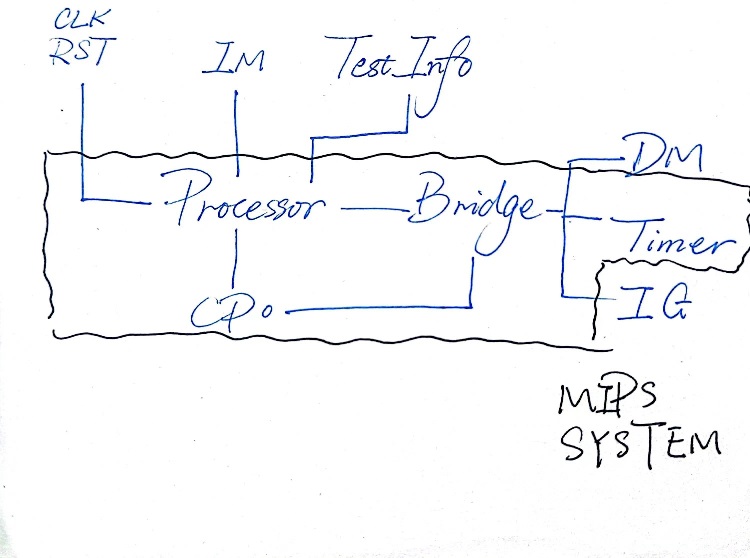 CLK
RST
IM
Test_Info
DM
Processor
Bridge
Timer
CP0
IG
MIPS
SYSTEM